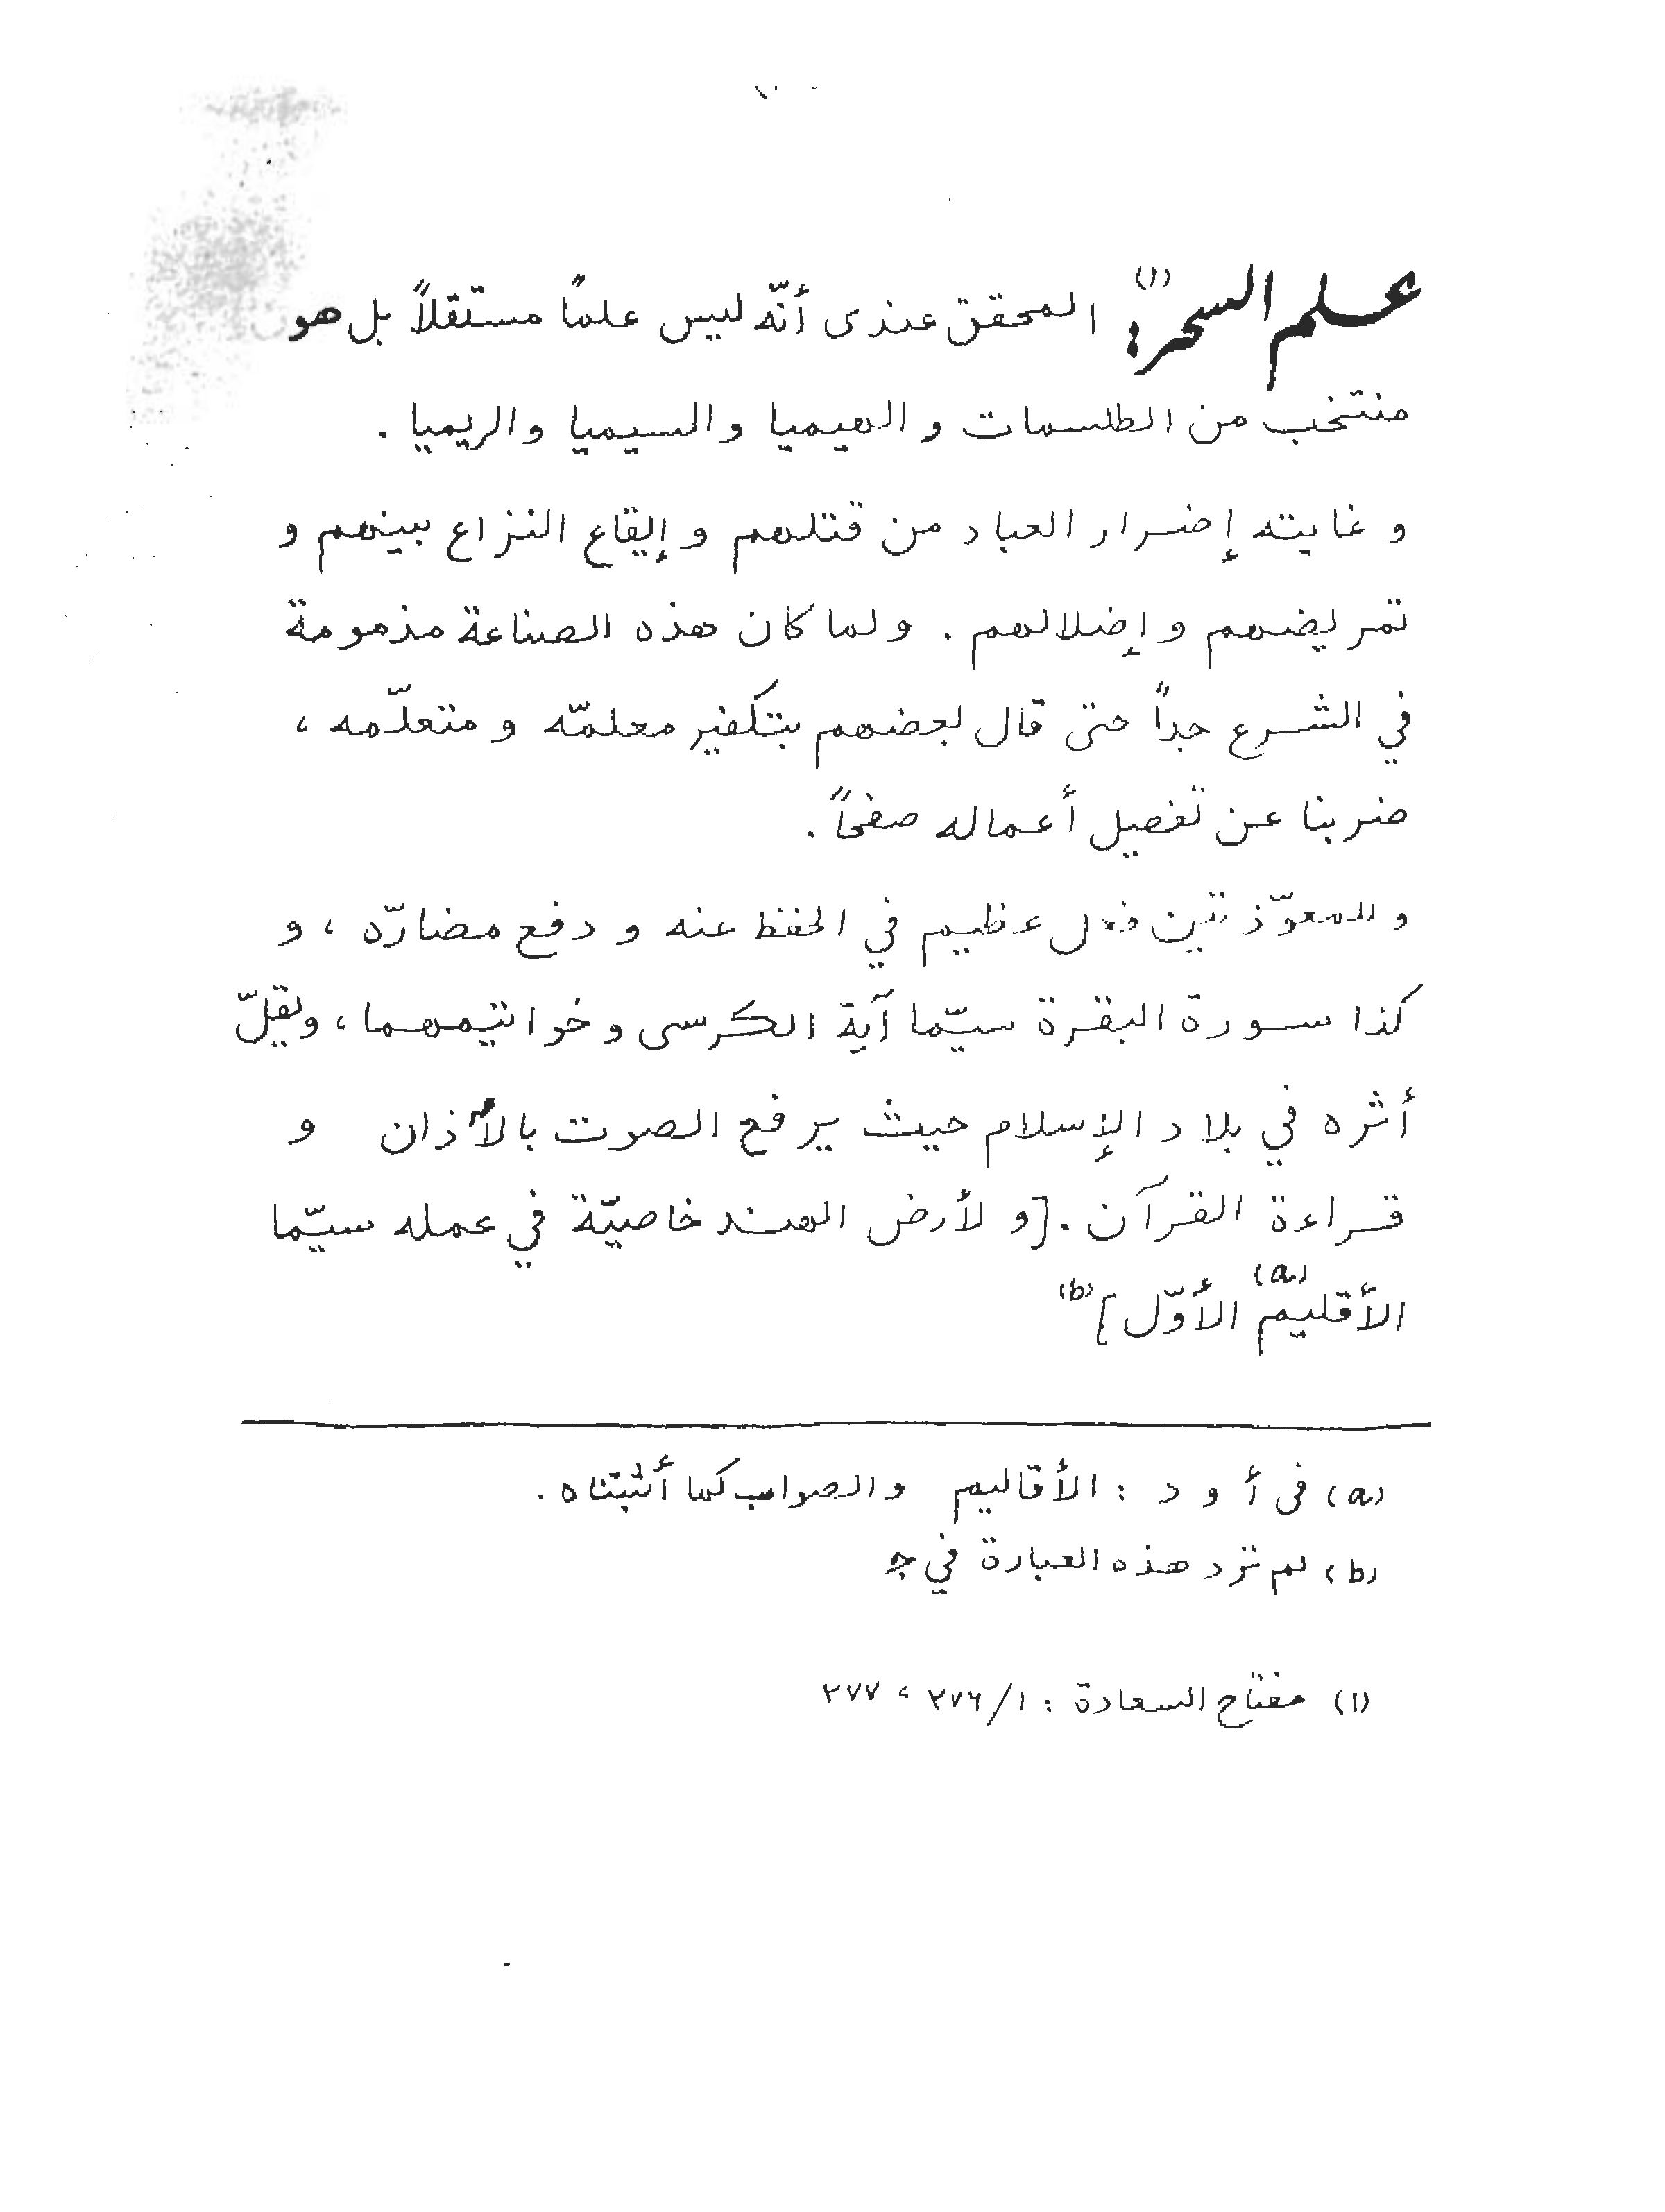 علم السحر(١): المحقق عندى أنّه ليس علمًا مستقلاً بل هو
منتخب من الطلسمات و الهيميا والسيميا والريميا .
و غايته إضرار العباد من قتلهم و إيقاع النزاع بينهم و
تمريضهم و إضلالهم . و لما كان هذه الصناعة مذمومة
في الشرع جداً حتى قال بعضهم بتكفير معلمّه و متعلّمه ،
ضربنا عن تفصيل أعماله صفحاً .
و للمعوّذتين عظيم في الحفظ عنه و دفع مضارّه ، و
كذا سورة البقرة سيّما آية الكرسى و خواتيمهما ، ويقلّ
أثره في بلاد الإسلام حيث يرفع الصوت بالأذان و
قراءة القرآن . [و لأرض الهند خاصيّة في عمله سيّما
الأقليم(a) الأوّل](b)
(a) فى أ و د : الأقاليم والصواب كما أثبتناه .
(b) لم ترد هذه العبارة في ج
(١) مفتاح السعادة : ١/ ٢٧٦ ، ٢٧٧